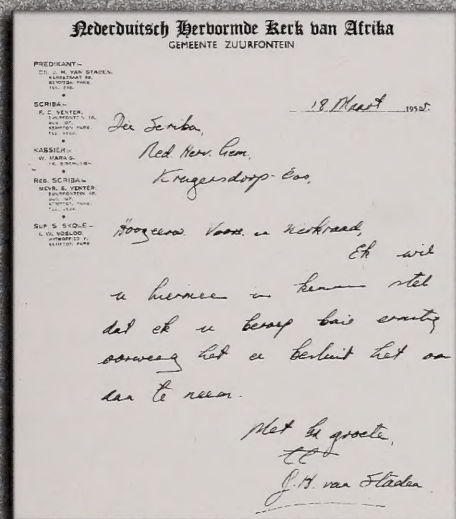 Nederduitsch Hervormde Kerk van Afrika
GEMEENTE ZUURFONTEIN
PREDIKANT:—
DS. J. H. VAN STADEN,
KEMPTON PARK.
SCRIBA:—
F. C. VENTER,
ZUURFONTEIN
KEMPTON PARK.
KASSIER:—
W. MARAIS,
REG. SCRIBA:—
MEVR. S. VENTER,
ZUURFONTEIN
KEMPTON PARK.
SUP. S. SKOLE:—
L. W. VOSLOO,
KEMPTON PARK
18 Maart 1955.
Die Scriba,
Ned Herv. Gem.
Krugersdorp-Oos,
Hoogeerw. Voors. en Kerkraad,
Ek wil
u hiermee in kennis stel
dat ek u beroep baie ernstig
oorweeg het en besluit het om
dan te neem.
Met groete,
J. H. van Staden